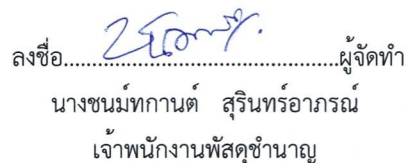 ลงชื่อ..........................................ผู้จัดทำ
นางชนม์ทกานต์ สุรินทร์อาภรณ์
เจ้าพนักงานพัสดุชำนาญ